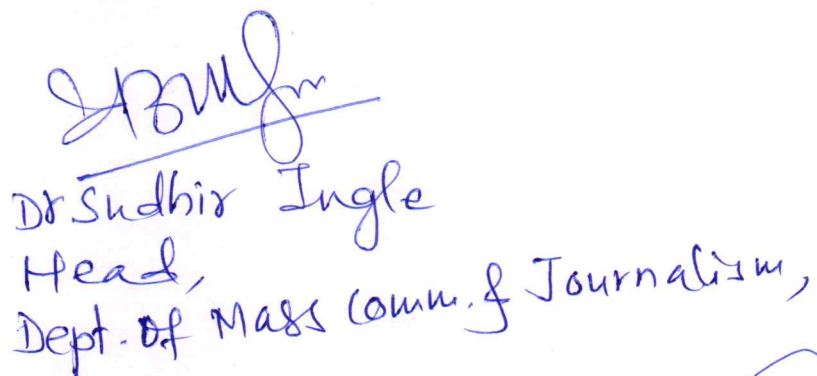 Dr Sudhir Ingle
Head,
Dept. of Mass Comm. & Journalism,